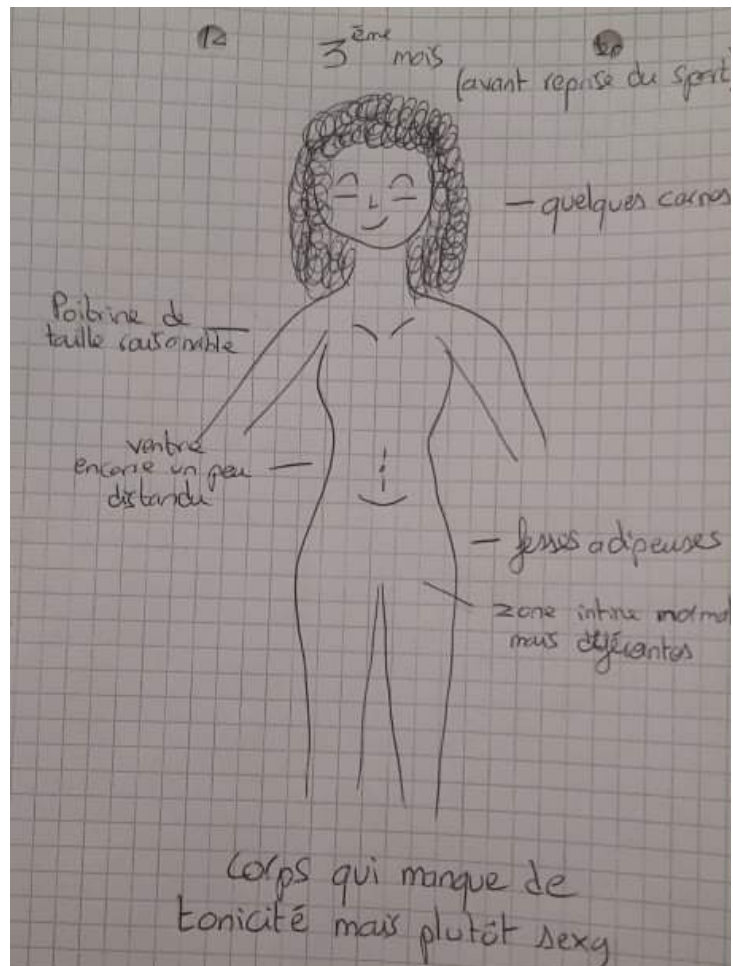 12
3ème mois
(avant reprise du sport)
quelques carnes
Poitrine de
taille raisonnable
ventre
encore un peu
distandu
fesses adipeuses
zone intime normal
mais
corps qui manque de
tonicité mais plutôt sexy